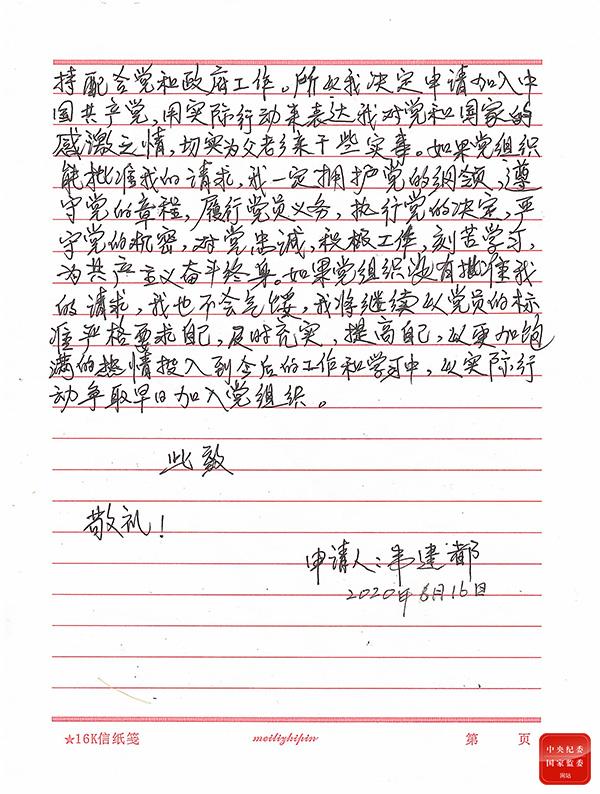 持配合党和政府工作。所以我决定申请加入中
国共产党，用实际行动来表达我对党和国家的
感激之情，切实为父老乡亲干些实事。如果党组织
能批准我的请求，我一定拥护党的纲领，遵
守党的章程，履行党员义务，执行党的决定，严
守党的机密，对党忠诚，积极工作，刻苦学习，
为共产主义奋斗终身。如果党组织没有批准我
的请求，我也不会气馁，我将继续以党员的标
准严格要求自己，及时充实，提高自己，以更加饱
满的热情投入到今后的工作和学习中，以实际行
动争取早日加入党组织。
此致
敬礼！
申请人：韦建都
2020年6月16日
★16K信纸笺 meilizhipin 第 页
中央纪委
国家监委
网站